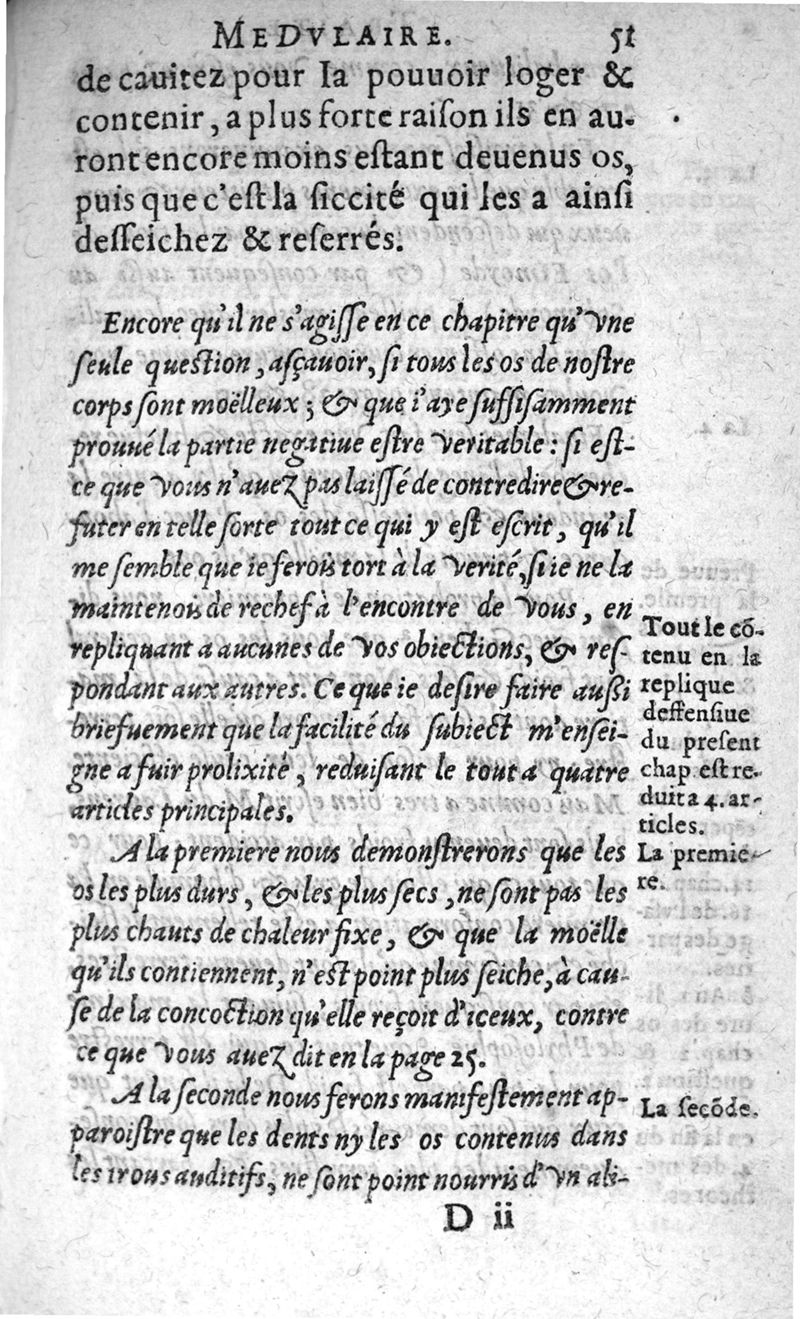 MEDVLAIRE. 51
de cauitez pour la pouuoir loger &
contenir, a plus forte raiſon ils en au-
ront encore moins eſtant deuenus os,
puis que c'eſt la ſiccité qui les a ainſi
deſſeichez & reſerrés.
Encore qu'il ne s'agiſſe en ce chapitre qu'vne
ſeule queſtion, aſçauoir, ſi tous les os de noſtre
corps ſont moëlleux; & que i'aye ſuffiſamment
prouué la partie negatiue eſtre veritable: ſi eſt-
ce que vous n'auez pas laiſſé de contredire & re-
futer en telle ſorte tout ce qui y eſt eſcrit, qu'il
me ſemble que ie ferois tort à la verité, ſi ie ne la
maintenois de rechef à l'encontre de vous, en
repliquant a aucunes de vos obiections, & reſ-
pondant aux autres. Ce que ie deſire faire auſſi
briefuement que la facilité du ſubiect m'enſei-
gne a fuir prolixité, reduiſant le tout a quatre
articles principales.
Tout le cõ-
tenu en la
replique
deffenſiue
du preſent
chap. eſt re-
duit a 4. ar-
ticles.
A la premiere nous demonſtrerons que les
os les plus durs, & les plus ſecs, ne ſont pas les
plus chauts de chaleur fixe, & que la moëlle
qu'ils contiennent, n'eſt point plus ſeiche, à cau-
ſe de la concoction qu'elle reçoit d'iceux, contre
ce que vous auez dit en la page 25.
La premie-
re.
A la ſeconde nous ferons manifeſtement ap-
paroiſtre que les dents ny les os contenus dans
les trous auditifs, ne ſont point nourris d'vn ali-
La ſecõde.
D ii